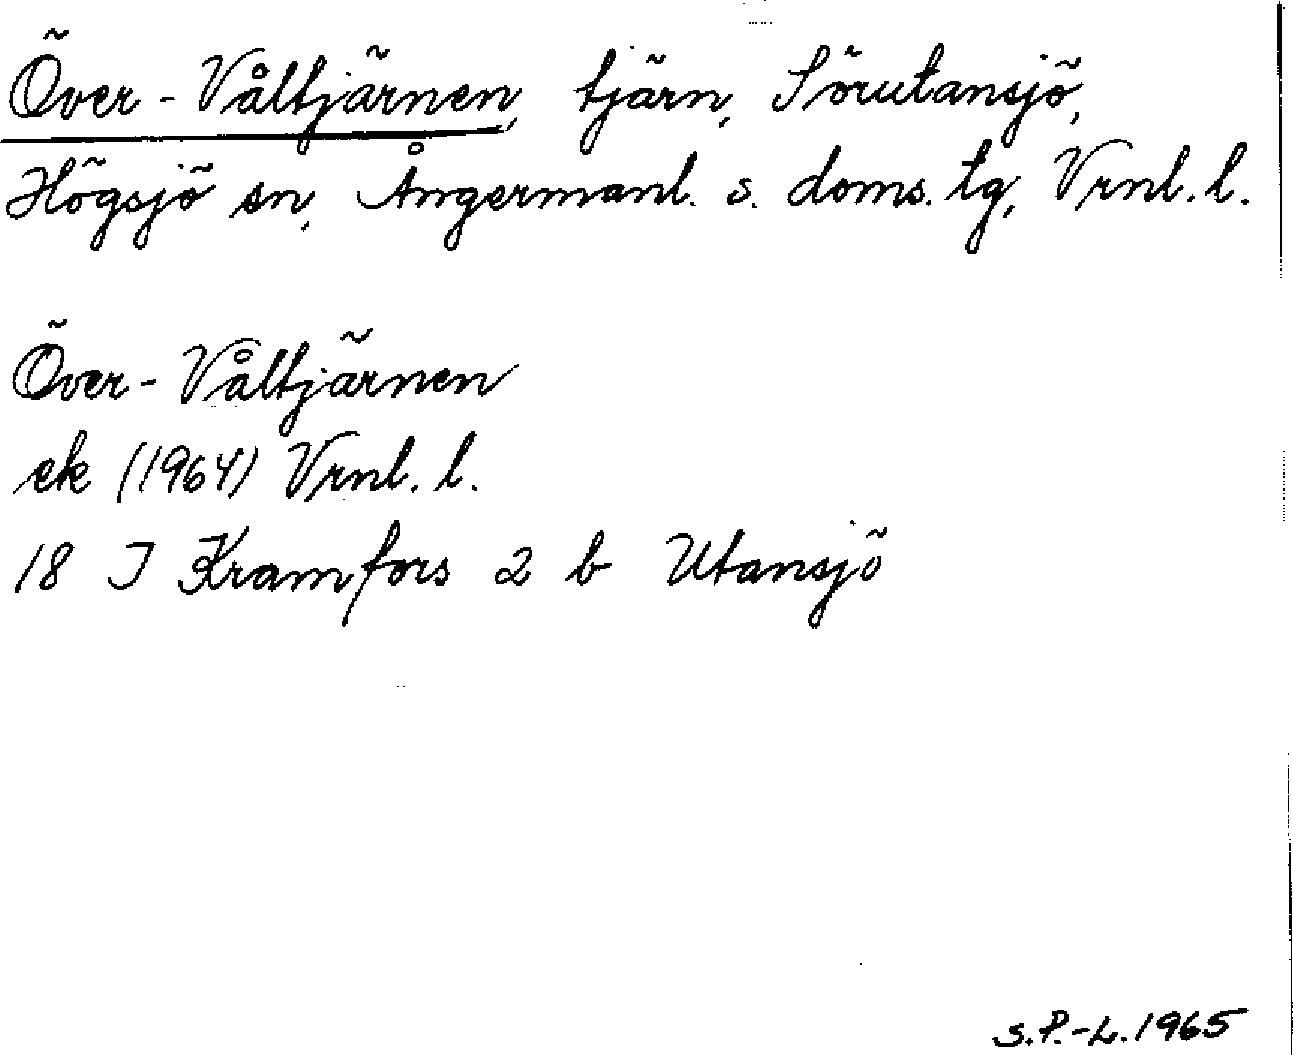 Över-Våltjärnen, tjärn, Sörutansjö,
Högsjö sn, Ångermanl. s. doms. tg, Vrnl. l.
Över-Våltjärnen
ek (1964) Vrnl. l.
18 J Kramfors 2 b Utansjö
S.P.-L. 1965